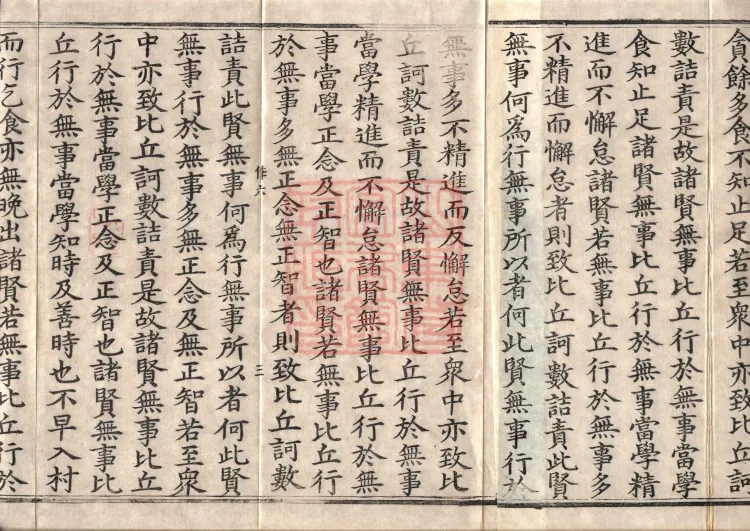 貪餘多食不知止足若至衆中亦致比丘訶
數詰責是故諸賢無事比丘行於無事當學
食知止足諸賢無事比丘行於無事當學精
進而不懈怠諸賢若無事比丘行於無事多
不精進而懈怠者則致比丘訶數詰責此賢
無事何爲行無事所以者何此賢無事行於
無事多不精進而反懈怠若至衆中亦致比
丘訶數詰責是故諸賢無事比丘行於無事
當學精進而不懈怠諸賢無事比丘行於無
事當學正念及正智也諸賢若無事比丘行
於無事多無正念無正智者則致比丘訶數
作六 三
詰責此賢無事何爲行無事所以者何此賢
無事行於無事多無正念及無正智若至衆
中亦致比丘訶數詰責是故諸賢無事比丘
行於無事當學正念及正智也諸賢無事比
丘行於無事當學知時及善時也不早入村
而行乞食亦無晚出諸賢若無事比丘行於